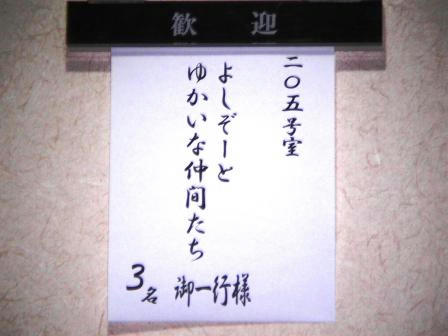 歓迎
二〇五号室
よしぞーと
ゆかいな仲間たち
御一行様
3名